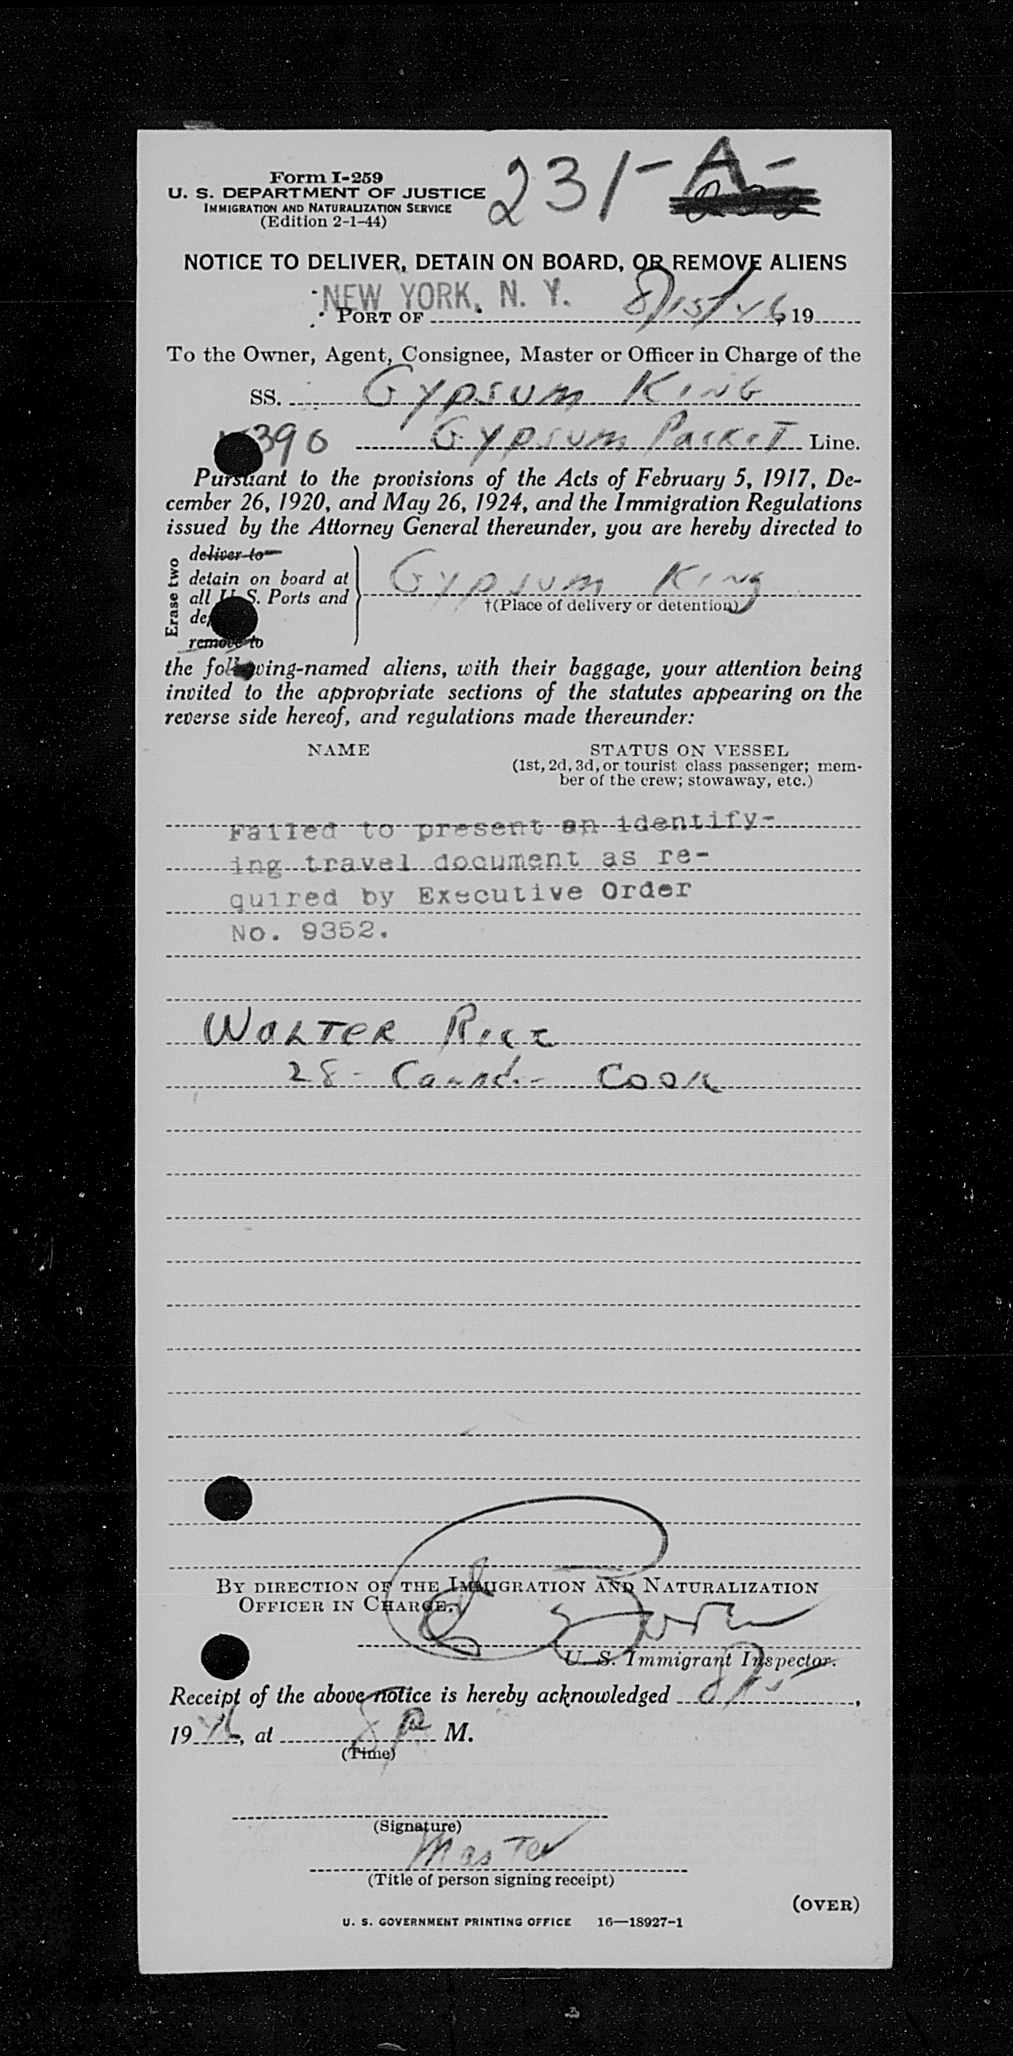 Form I-259
U. S. DEPARTMENT OF JUSTICE
IMMIGRATION AND NATURALIZATION SERVICE
(Edition 2-1-44)
231-A-
NOTICE TO DELIVER, DETAIN ON BOARD, OR REMOVE ALIENS
NEW YORK, N. Y. 8/15/46
PORT OF , 19
To the Owner, Agent, Consignee, Master or Officer in Charge of the
SS. Gypsum King
390 Gypsum Packet Line.
Pursuant to the provisions of the Acts of February 5, 1917, De-
cember 26, 1920, and May 26, 1924, and the Immigration Regulations
issued by the Attorney General thereunder, you are hereby directed to
Erase two
deliver to
detain on board at
all U. S. Ports and
remove to
Gypsum King
†(Place of delivery or detention)
the following-named aliens, with their baggage, your attention being
invited to the appropriate sections of the statutes appearing on the
reverse side hereof, and regulations made thereunder:
NAME STATUS ON VESSEL
(1st, 2d, 3d, or tourist class passenger; mem-
ber of the crew; stowaway, etc.)
Failed to present an identify-
ing travel document as re-
quired by Executive Order
No. 9352.
WALTER Rice
28 - Canad. - Cook
BY DIRECTION OF THE IMMIGRATION AND NATURALIZATION
OFFICER IN CHARGE.
U. S. Immigrant Inspector.
Receipt of the above notice is hereby acknowledged 8/15,
1946, at 8 P M.
(Time)
(Signature)
Master
(Title of person signing receipt)
(OVER)
U. S. GOVERNMENT PRINTING OFFICE 16—18927-1